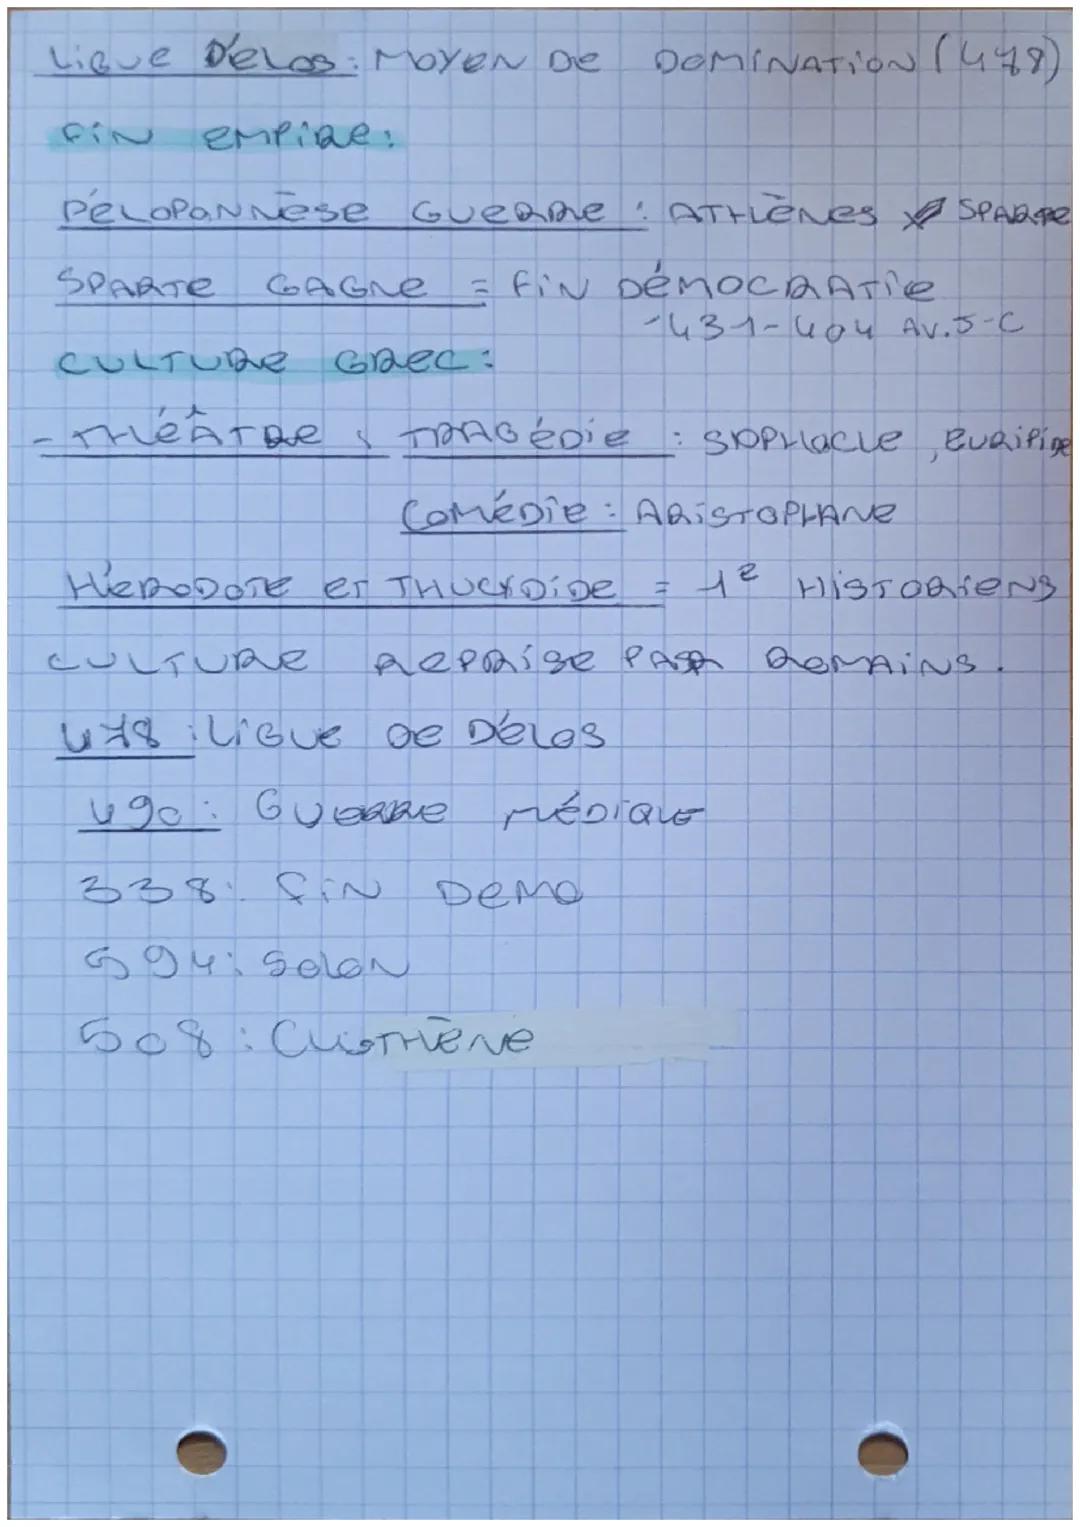 Ligue Délos : MOYEN DE DOMINATION (478)
FIN EMPIRE :
PÉLOPONNÈSE GUERRE : ATHÈNES SPARTE
SPARTE GAGNE = FIN DÉMOCRATIE
-431-404 AV.J-C
CULTURE GREC :
- THÉÂTRE : TRAGÉDIE : SOPHOCLE, EURIPIDE
COMÉDIE : ARISTOPHANE
HÉRODOTE ET THUCYDIDE = 1e HISTORIENS
CULTURE REPRISE PAR ROMAINS.
478 : LIGUE DE DÉLOS
490 : GUERRE MÉDIQUE
338 : FIN DEMO
594 : SOLON
508 : CLISTHÈNE